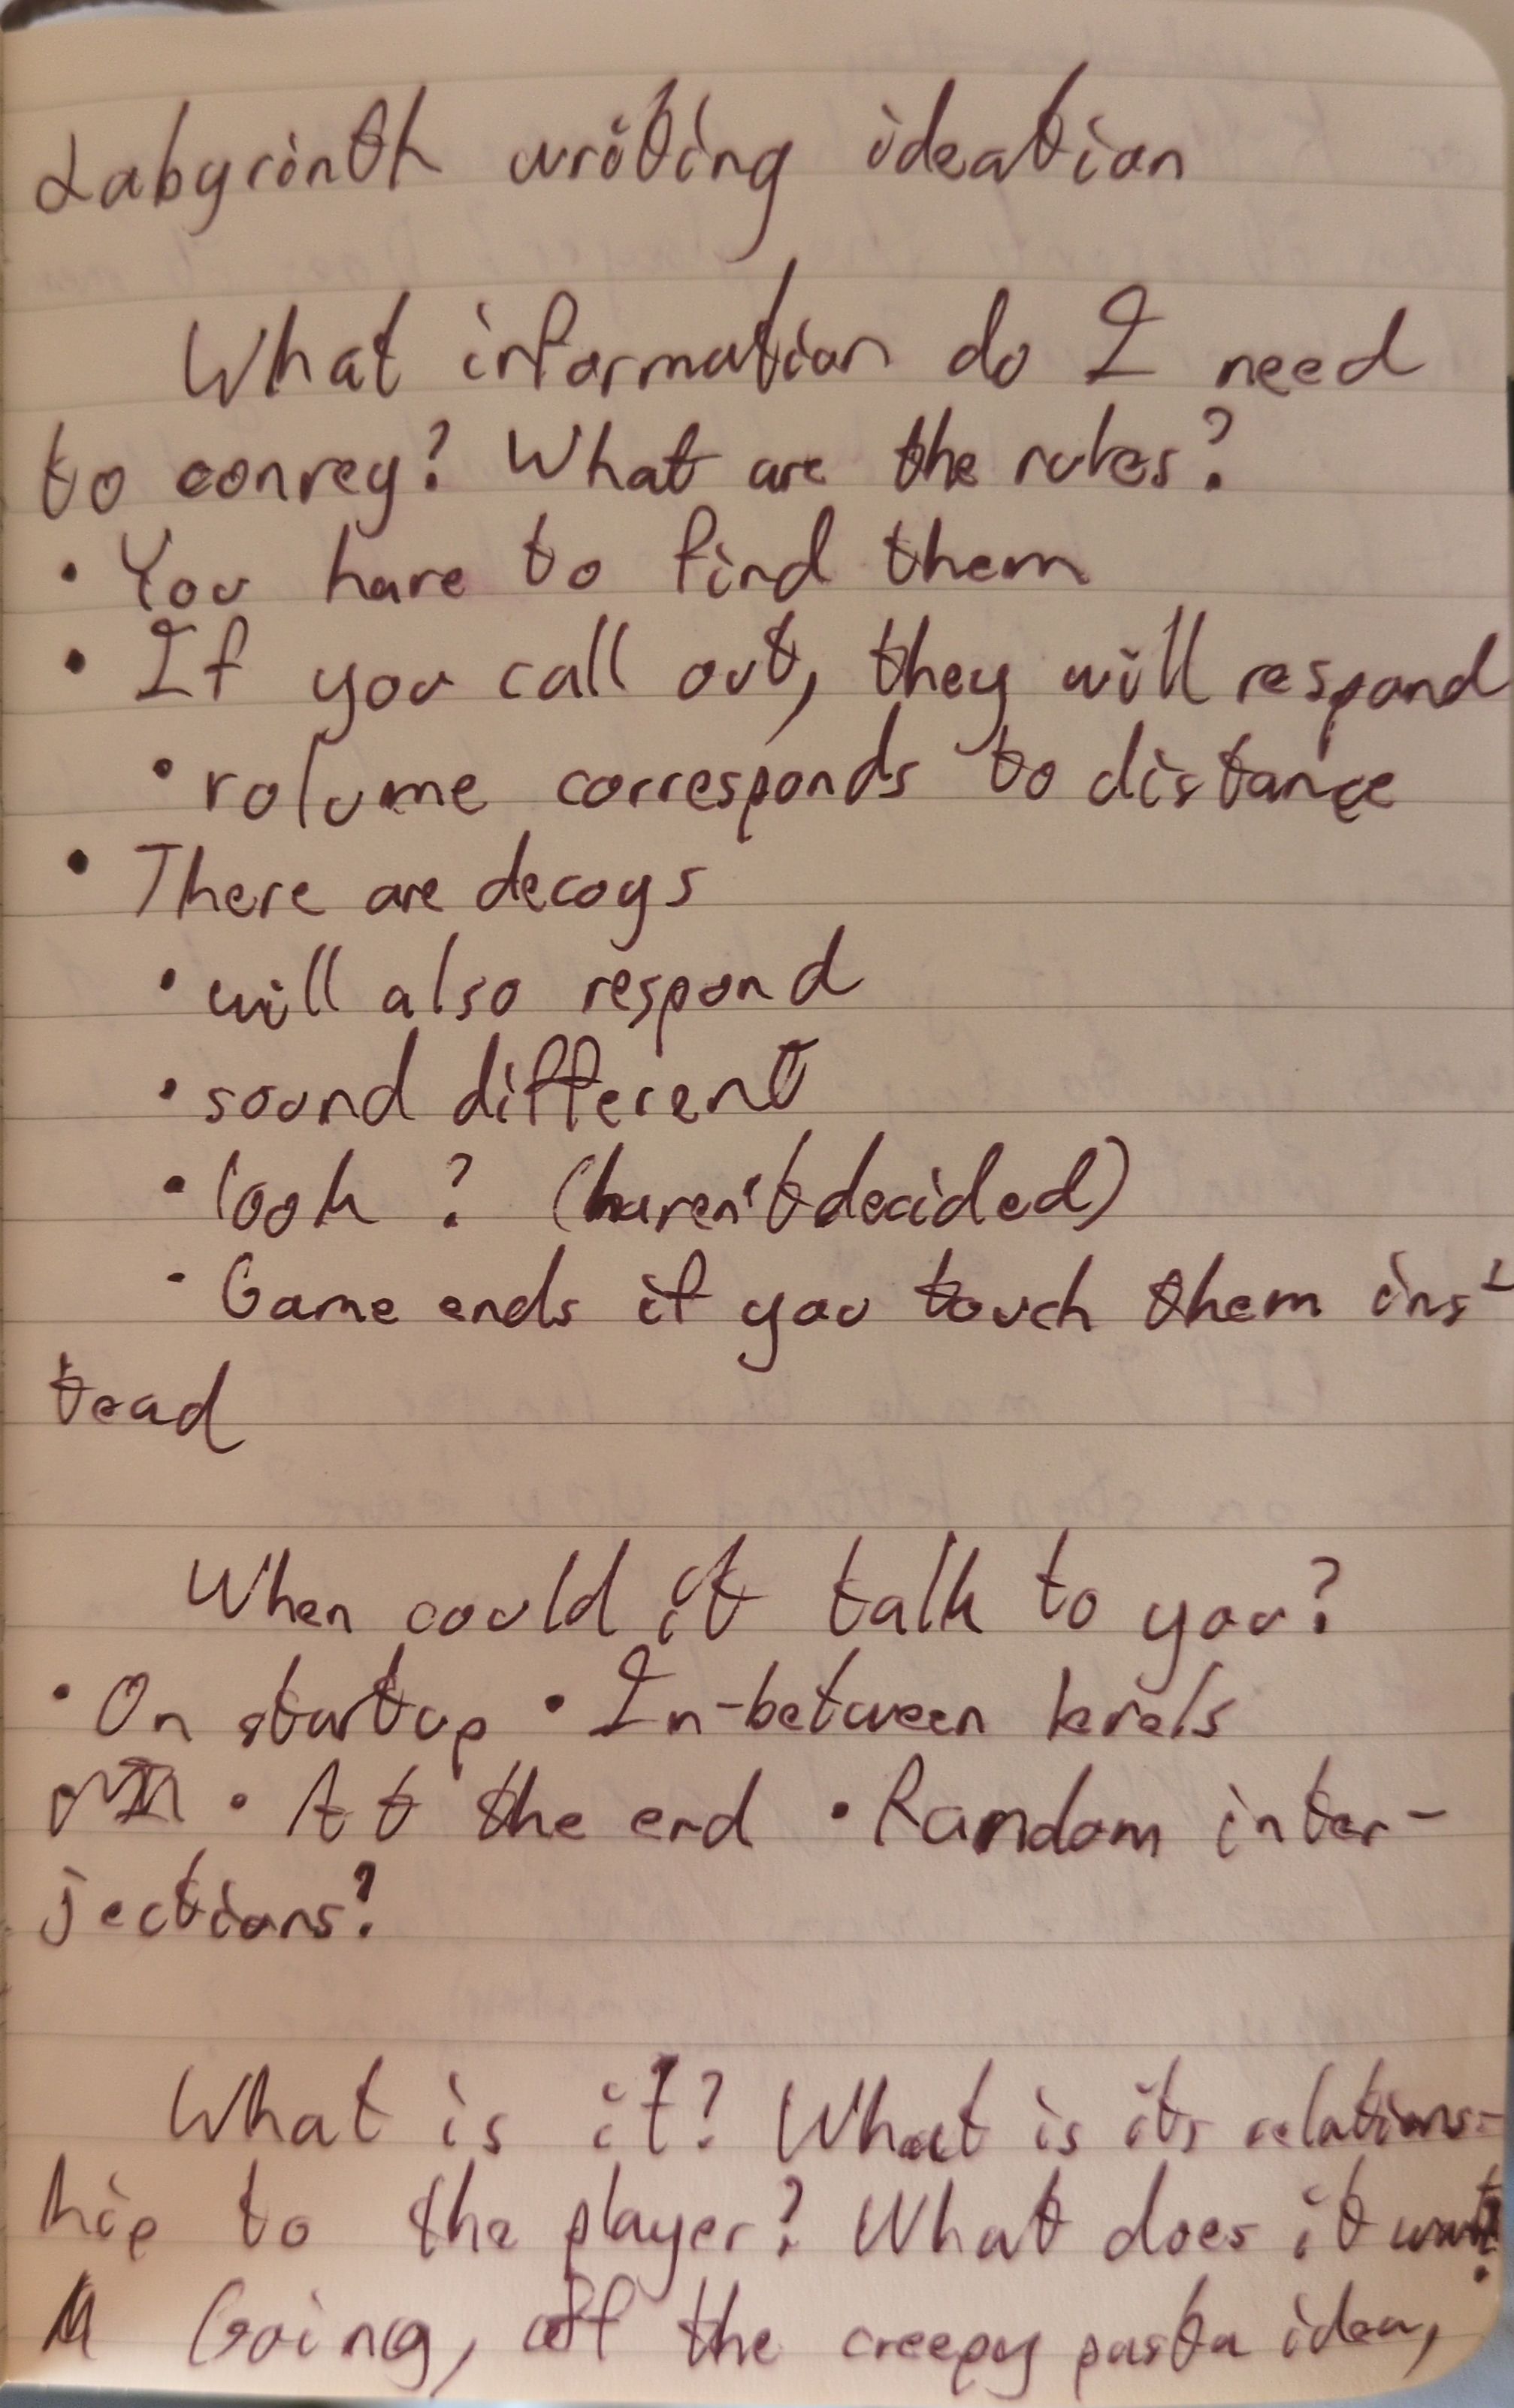 Labyrinth writing ideation
What information do I need
to convey? What are the rules?
• You have to find them
• If you call out, they will respond
• volume corresponds to distance
• There are decoys
• will also respond
• sound different
• look ? (haven't decided)
• Game ends if you touch them ins-
tead
When could it talk to you?
• On startup • In-between levels
• At the end • Random inter-
jections?
What is it? What is its relations-
hip to the player? What does it want?
Going, off the creepy pasta idea,